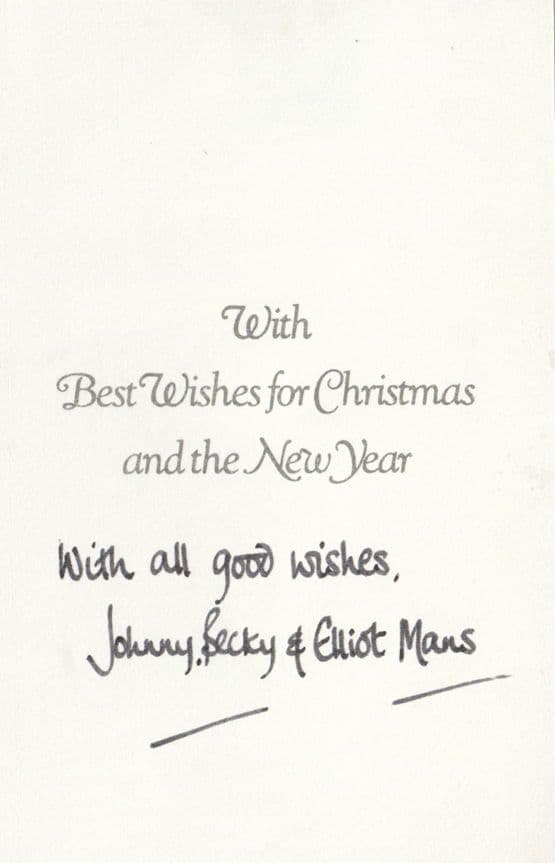 With
Best Wishes for Christmas
and the New Year
With all good wishes,
Johnny, Becky & Elliot Mans